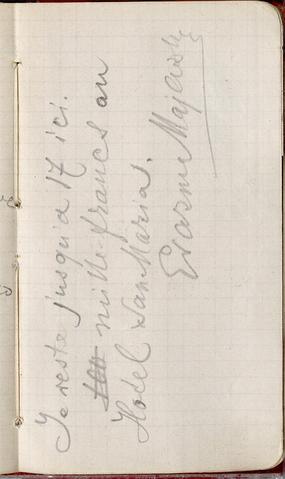 Je reste jusqu'a 17 ici.
mille francs au
Hotel san Maria.
Erasme Majewski